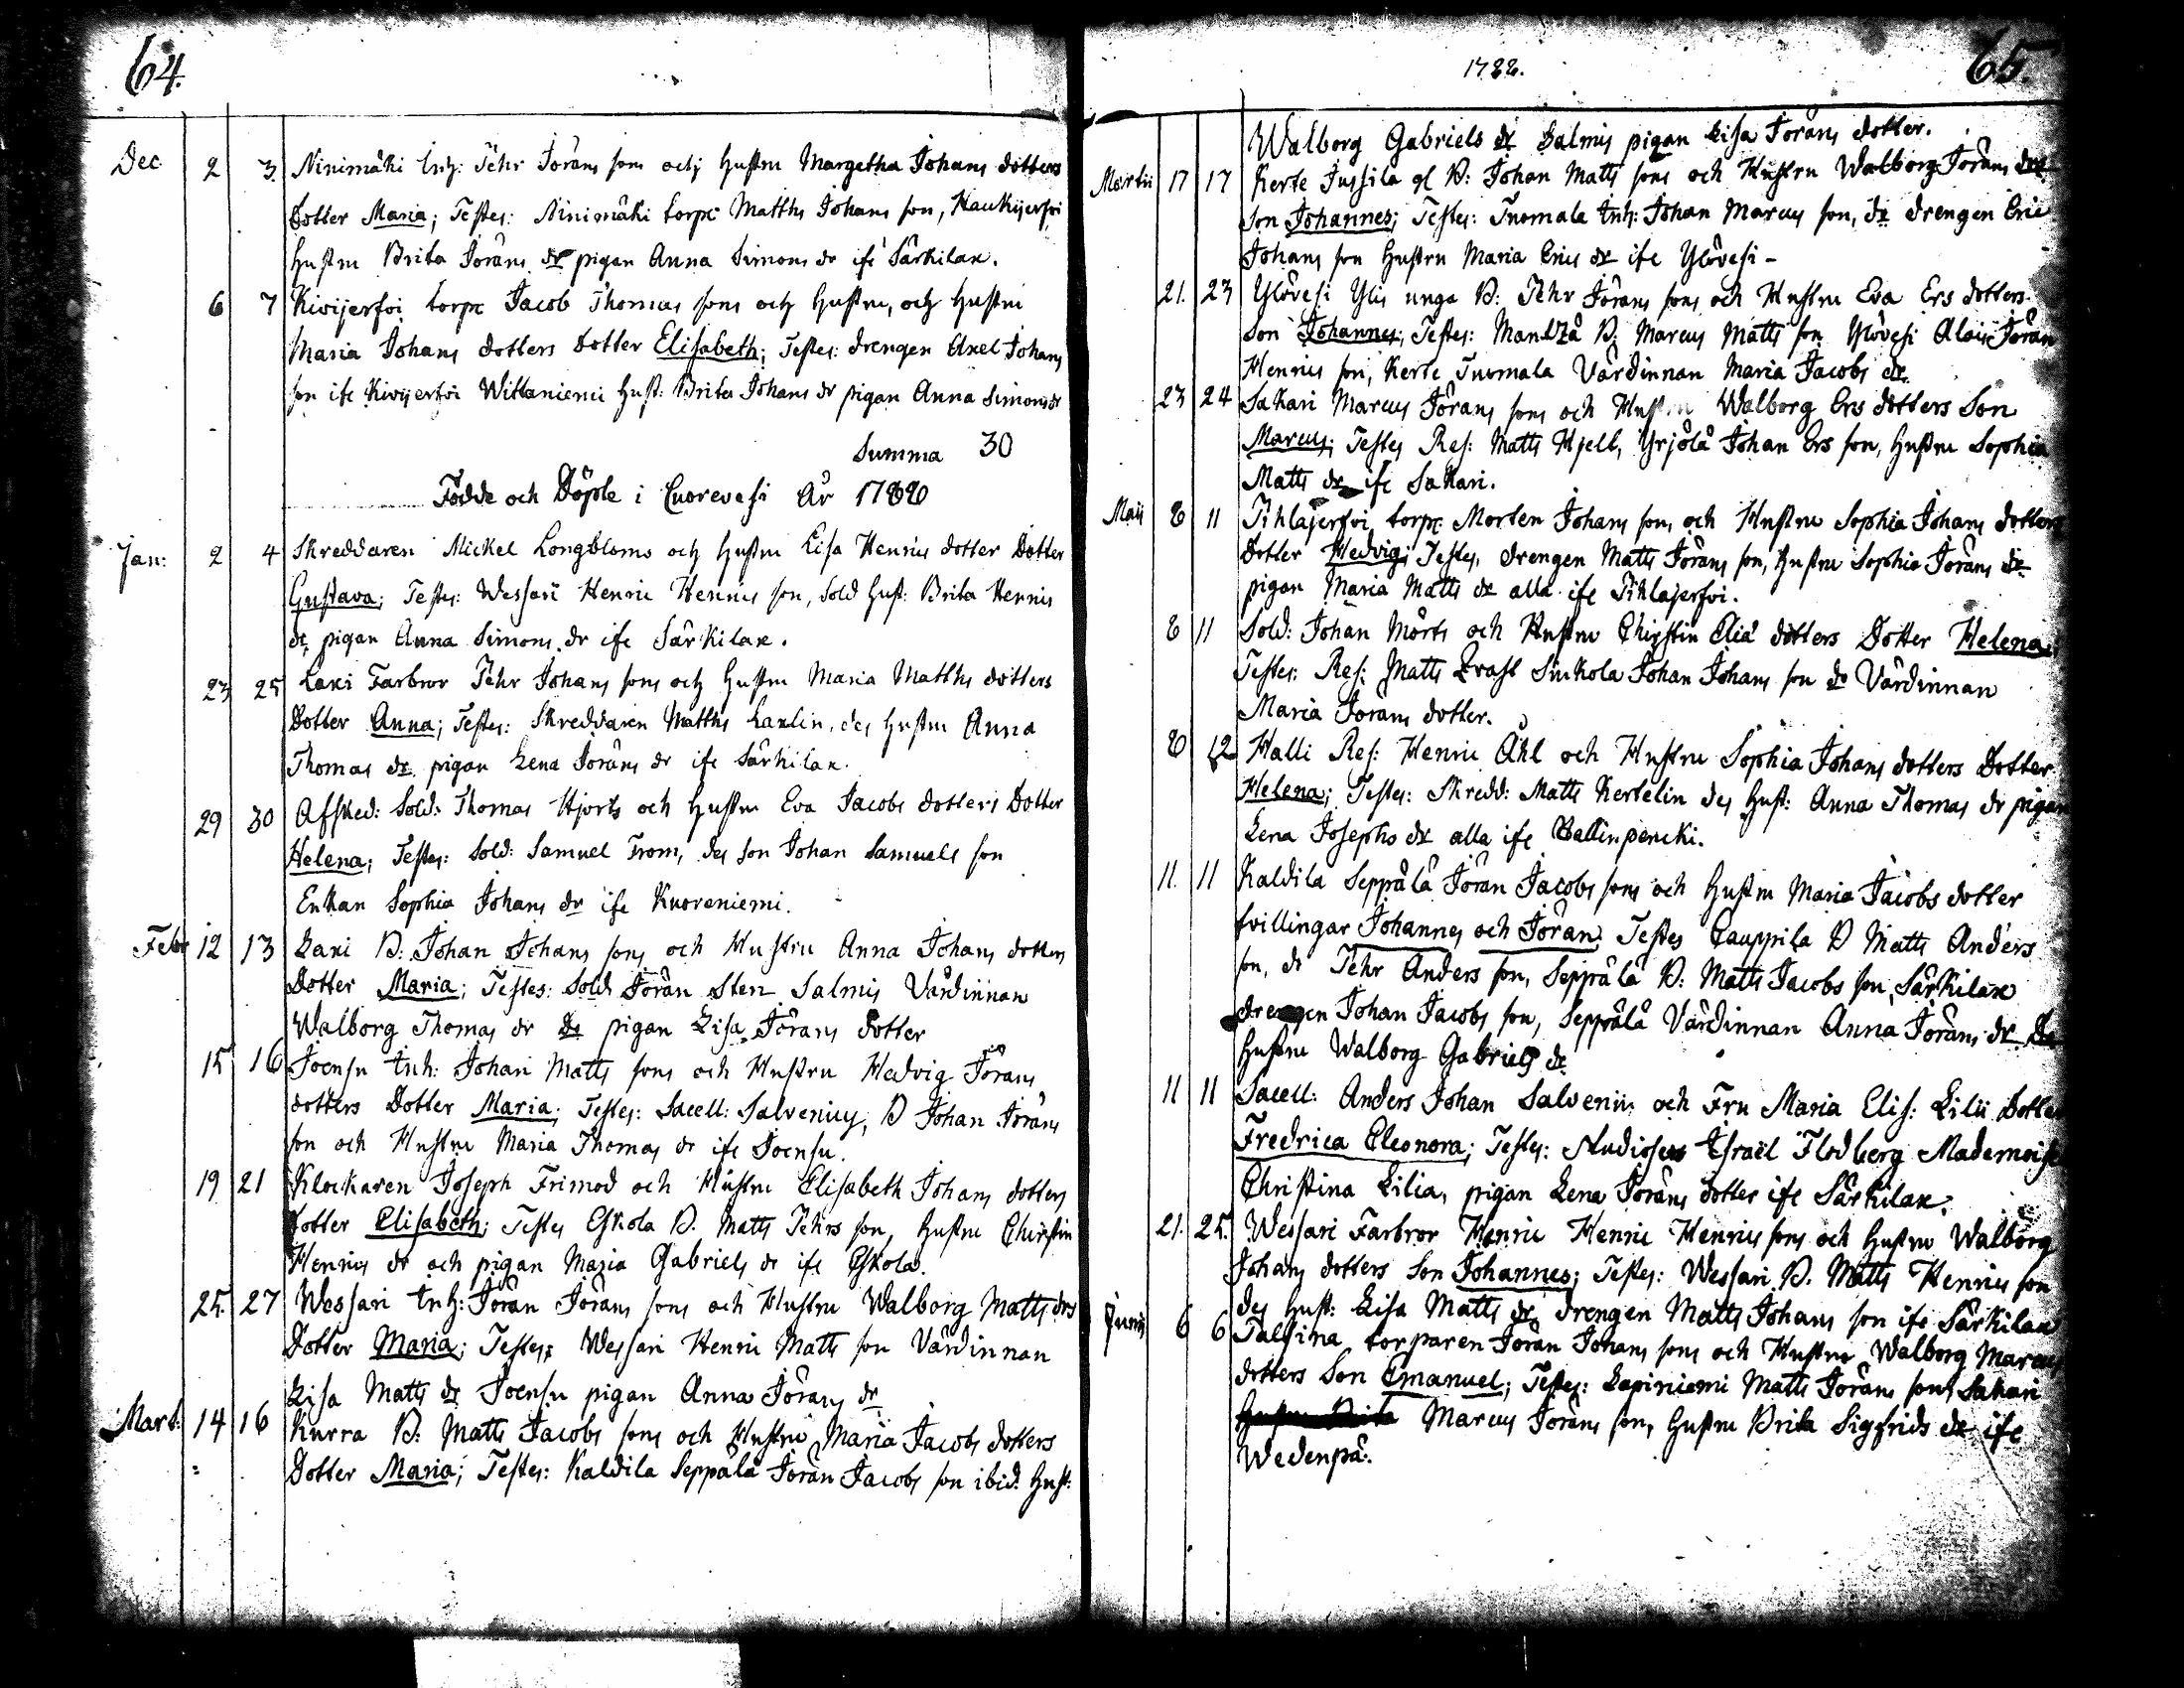 64.
Dec 2 3. Ninimäki Inh: Pehr Jörans son och hustru Margetha Johans dotters
Dotter Maria; Testes: Ninimäki torp: Matths Johans son, Haukijerfvi
hustru Brita Jörans dr pigan Anna Simons dr ife Särkilax.
6 7 Kivijerfvi torp: Jacob Thomas sons och hustru, och hustru
Maria Johans dotters Dotter Elisabeth; Testes: drengen Axel Johans
son ife Kivijerfvi Wittaniemi hust: Brita Johans dr pigan Anna Simons dr
Summa 30
Födde och Döpte i Cuorevesi År 1788
Jan: 2 4 Skreddaren Mickel Longbloms och hustru Lisa Henrics dotter Dotter
Gustava; Testes: Wessari Henric Henrics son, Sold hust: Brita Henrics
dr, pigan Anna Simons dr ife Särkilax.
23 25 Laxi Farbror Pehr Johans sons och hustru Maria Matths dotters
Dotter Anna; Testes: Skreddaren Matths Laxlin, des hustru Anna
Thomas dr. pigan Lena Jörans dr ife Särkilax.
29 30 Afsked: Sold: Thomas Hjorts och hustru Eva Jacobs dotters Dotter
Helena; Testes: Sold: Samuel From, des son Johan Samuels son
Enkan Sophia Johans dr ife Kuoreniemi.
Febr 12 13 Laxi B: Johan Johans sons och Hustru Anna Johans dotters
Dotter Maria; Testes: Sold Jöran Sten Salmis Värdinnan
Walborg Thomas dr Do pigan Lisa Jörans dotter
15 16 Joensu Inh: Johan Matts sons och Hustru Hedvig Jörans
dotters Dotter Maria; Testes: Sacell: Salvenius, B Johan Jörans
son och Hustru Maria Thomas dr ife Joensu.
19 21 Klockaren Joseph Frimod och Hustru Elisabeth Johans dotters
dotter Elisabeth; Testes Eskola B. Matts Pehrs son, hustru Christin
Henrics dr och pigan Maria Gabriels dr ife Eskola.
25. 27 Wessari Inh: Jöran Jörans sons och Hustru Walborg Matts drs
Dotter Maria; Testes: Wessari Henric Matts son Värdinnan
Lisa Matts dr Joensu pigan Anna Jörans dr
Mart: 14 16 Kurra B: Matts Jacobs sons och Hustru Maria Jacobs dotters
Dotter Maria; Testes: Kaldila Seppälä Jöran Jacobs son ibid. hust:
1788. 65.
Walborg Gabriels dr Salmis pigan Lisa Jörans dotter.
Martii 17 17 Kerte Jussila gl B: Johan Matts sons och Hustru Walborg Jörans drs
son Johannes; Testes: Tuomala Inh: Johan Marcus son, do drengen Eric
Johans son hustru Maria Erics dr ife Ylövesi -
21. 23 Ylövesi Ylis unga B: Pehr Jörans sons och Hustru Eva Ers dotters
son Johannes; Testes: Mandzå B: Marcus Matts son Ylövesi Alais Jöran
Henrics son, Kerte Tuomala Värdinnan Maria Jacobs dr.
23 24 Sakari Marcus Jörans sons och Hustru Walborg Ers dotters Son
Marcus; Testes Res: Matts Hjelt, Yrjölä Johan Ers son, hustru Sophia
Matts dr ife Sakari.
Maii 8 11 Pihlajerfvi torp: Morten Johans sons och Hustru Sophia Johans dotters
dotter Hedvig; Testes, drengen Matts Jörans son, hustru Sophia Jörans dr
pigan Maria Matts dr alla ife Pihlajerfvi.
8 11 Sold: Johan Mörts och Hustru Christin Eliæ dotters Dotter Helena;
Testes: Res: Matts Qvast Sinkola Johan Johans son do Värdinnan
Maria Jörans dotter.
8 12 Halli Res: Henric Åhl och Hustru Sophia Johans dotters Dotter
Helena; Testes: Skredd: Matts Kertelin des hust: Anna Thomas dr pigan
Lena Josephs dr alla ife Ballinpencki.
11. 11 Kaldila Seppälä Jöran Jacobs sons och hustru Maria Jacobs dotter
tvillingar Johannes och Jöran; Testes Cauppila B Matts Anders
son, do Pehr Anders son, Seppälä B: Matts Jacobs son, Särkilax
drengen Johan Jacobs son, Seppälä Värdinnan Anna Jörans dr. Do
hustru Walborg Gabriels dr
11 11 Sacell: Anders Johan Salvenii och Fru Maria Elis: Lilii Dotter
Fredrica Eleonora; Testes: Studiosus Israël Flodberg Mademoiselle
Christina Lilia, pigan Lena Jörans dotter ife Särkilax.
21. 25. Wessari Farbror Henric Henric Henrics sons och hustru Walborg
Johans dotters Son Johannes; Testes: Wessari B. Matts Henrics son
des hust: Lisa Matts dr drengen Matts Johans son ife Särkilax
Junii 6 6 Talsina torparen Jöran Johans sons och Hustru Walborg Marcus
dotters Son Emanuel; Testes: Lapiniemi Matts Jörans son, Sakari
Marcus Jörans son, hustru Brita Sigfrids dr ife
Wedenpä.